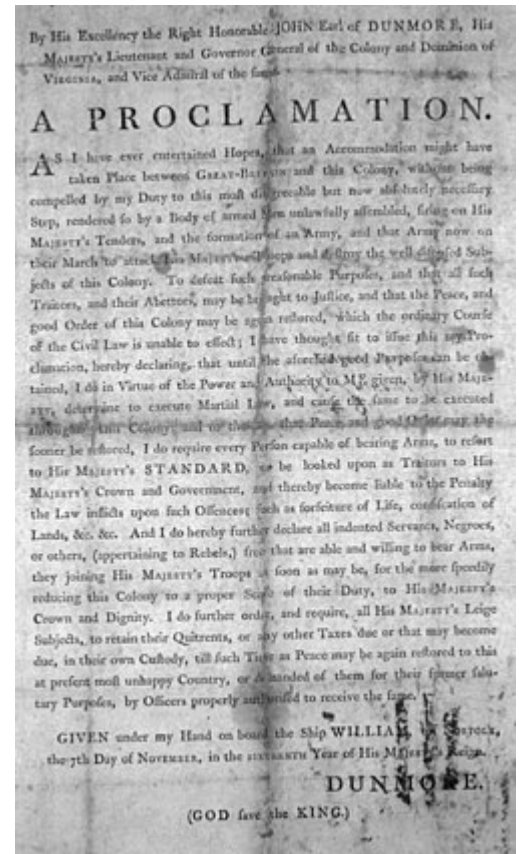 By His Excellency the Right Honorable JOHN Earl of DUNMORE, His
MAJESTY's Lieutenant and Governor General of the Colony and Dominion of
VIRGINIA, and Vice Admiral of the same.
A PROCLAMATION.
AS I have ever entertained Hopes, that an Accommodation might have
taken Place between GREAT-BRITAIN and this Colony, without being
compelled by my Duty to this most disagreeable but now absolutely necessary
Step, rendered so by a Body of armed Men unlawfully assembled, firing on His
MAJESTY's Tenders, and the formation of an Army, and that Army now on
their March to attack His MAJESTY's Troops and destroy the well disposed Sub-
jects of this Colony. To defeat such treasonable Purposes, and that all such
Traitors, and their Abettors, may be brought to Justice, and that the Peace, and
good Order of this Colony may be again restored, which the ordinary Course
of the Civil Law is unable to effect; I have thought fit to issue this my Pro-
clamation, hereby declaring, that until the aforesaid good Purposes can be ob-
tained, I do in Virtue of the Power and Authority to ME given, by His MAJE-
STY, determine to execute Martial Law, and cause the same to be executed
throughout this Colony; and to the end that Peace and good Order may the
sooner be restored, I do require every Person capable of bearing Arms, to resort
to His MAJESTY's STANDARD, or be looked upon as Traitors to His
MAJESTY's Crown and Government, and thereby become liable to the Penalty
the Law inflicts upon such Offences; such as forfeiture of Life, confiscation of
Lands, &c. &c. And I do hereby further declare all indented Servants, Negroes,
or others, (appertaining to Rebels,) free that are able and willing to bear Arms,
they joining His MAJESTY's Troops as soon as may be, for the more speedily
reducing this Colony to a proper Sense of their Duty, to His MAJESTY's
Crown and Dignity. I do further order, and require, all His MAJESTY's Leige
Subjects, to retain their Quitrents, or any other Taxes due or that may become
due, in their own Custody, till such Time as Peace may be again restored to this
at present most unhappy Country, or demanded of them for their former salu-
tary Purposes, by Officers properly authorised to receive the same.
GIVEN under my Hand on board the Ship WILLIAM,
the 7th Day of NOVEMBER, in the SIXTEENTH Year of His MAJESTY's Reign.
DUNMORE.
(GOD save the KING.)